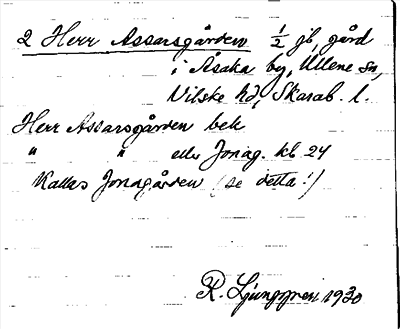 2 Herr Assarsgården 1/2 jb, gård
i Åsaka by, Ullene sn,
Vilske hd, Skarab. l.
Herr Assarsgården bek
" " eller Jonsg. kb 24
Kallas Jonsgården (se detta!)
R. Ljunggren 1930